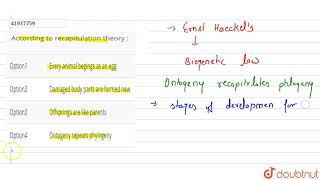 41937759
According to recapitulation theory :
Option1 Every animal begings as an egg
Option2 Damaged body parts are formed new
Option3 Offsprings are like parents
Option4 Ontogeny repeats phylogeny
→ Ernst Haeckel's
↓
Biogenetic law
Ontogeny recapitulates phlogeny
→ stages of developmen for
doubtnut